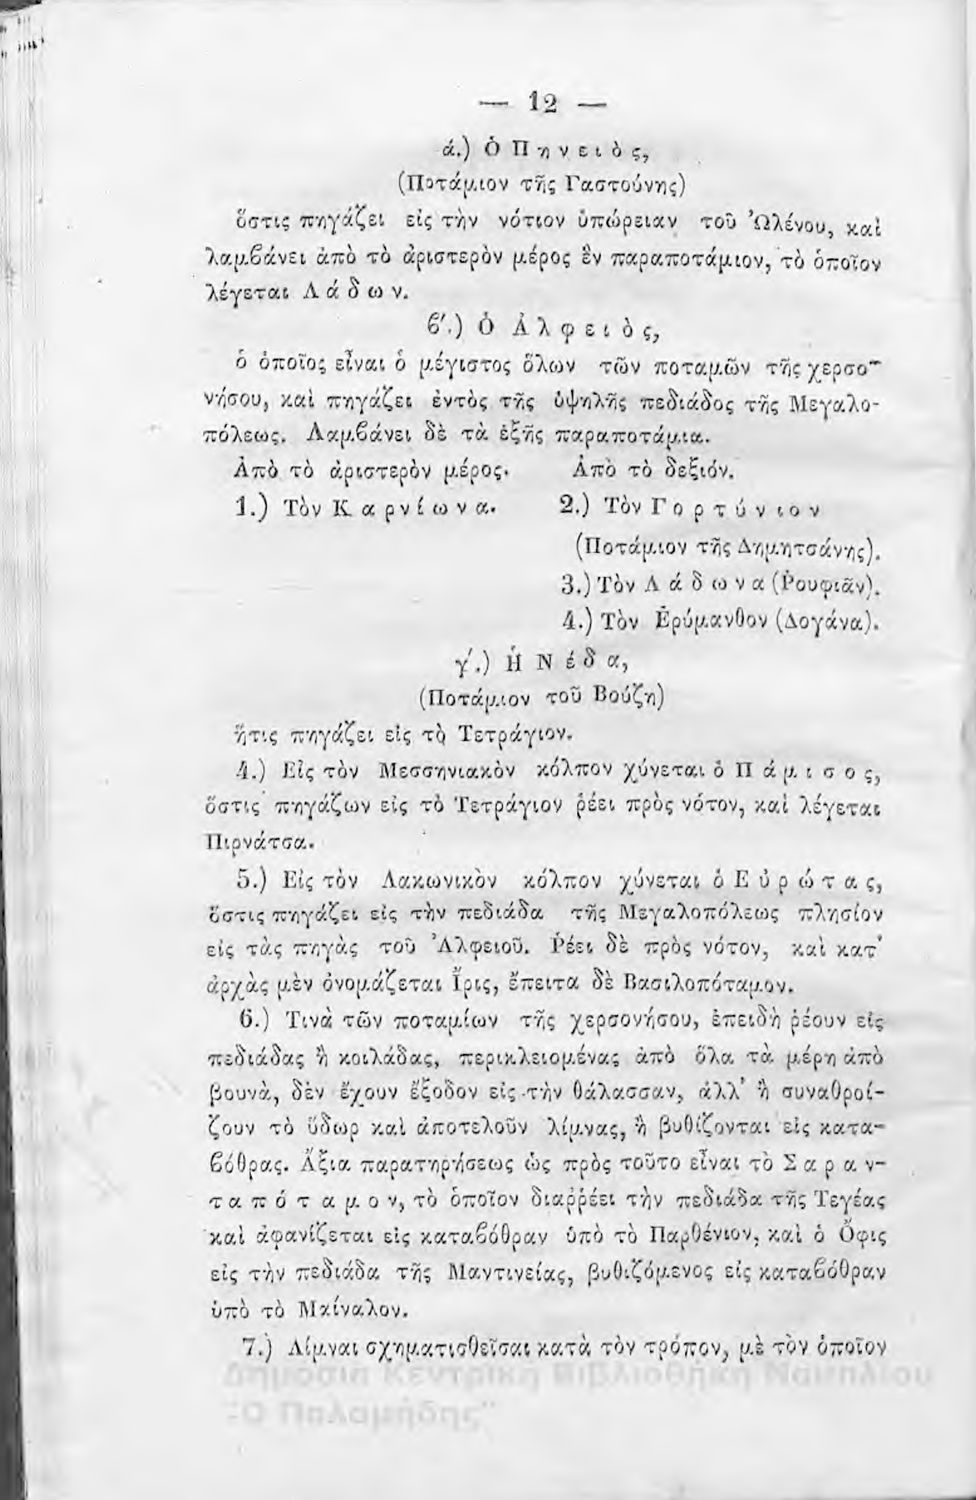 — 12 —
ά.) Ὁ Πηνειὸς,
(Ποτάμιον τῆς Γαστούνης)
ὅστις πηγάζει εἰς τὴν νότιον ὑπώρειαν τοῦ Ὠλένου, καὶ
λαμβάνει ἀπὸ τὸ ἀριστερὸν μέρος ἓν παραποτάμιον, τὸ ὁποῖον
λέγεται Λάδων.
β΄.) Ὁ Ἀλφειὸς,
ὁ ὁποῖος εἶναι ὁ μέγιστος ὅλων τῶν ποταμῶν τῆς χερσο-
νήσου, καὶ πηγάζει ἐντὸς τῆς ὑψηλῆς πεδιάδος τῆς Μεγαλο-
πόλεως. Λαμβάνει δὲ τὰ ἑξῆς παραποτάμια.
Ἀπὸ τὸ ἀριστερὸν μέρος. Ἀπὸ τὸ δεξιόν.
1.) Τὸν Καρνίωνα. 2.) Τὸν Γορτύνιον
(Ποτάμιον τῆς Δημητσάνης).
3.) Τὸν Λάδωνα (Ῥουφιᾶν).
4.) Τὸν Ἐρύμανθον (Δογάνα).
γ΄.) Ἡ Νέδα,
(Ποτάμιον τοῦ Βούζη)
ἥτις πηγάζει εἰς τὸ Τετράγιον.
4.) Εἰς τὸν Μεσσηνιακὸν κόλπον χύνεται ὁ Πάμισος,
ὅστις πηγάζων εἰς τὸ Τετράγιον ῥέει πρὸς νότον, καὶ λέγεται
Πιρνάτσα.
5.) Εἰς τὸν Λακωνικὸν κόλπον χύνεται ὁ Εὐρώτας,
ὅστις πηγάζει εἰς τὴν πεδιάδα τῆς Μεγαλοπόλεως πλησίον
εἰς τὰς πηγὰς τοῦ Ἀλφειοῦ. Ῥέει δὲ πρὸς νότον, καὶ κατ'
ἀρχὰς μὲν ὀνομάζεται Ἴρις, ἔπειτα δὲ Βασιλοπόταμον.
6.) Τινὰ τῶν ποταμίων τῆς χερσονήσου, ἐπειδὴ ῥέουν εἰς
πεδιάδας ἢ κοιλάδας, περικλειομένας ἀπὸ ὅλα τὰ μέρη ἀπὸ
βουνὰ, δὲν ἔχουν ἔξοδον εἰς τὴν θάλασσαν, ἀλλ' ἢ συναθροί-
ζουν τὸ ὕδωρ καὶ ἀποτελοῦν λίμνας, ἢ βυθίζονται εἰς κατα-
βόθρας. Ἄξια παρατηρήσεως ὡς πρὸς τοῦτο εἶναι τὸ Σαραν-
ταπόταμον, τὸ ὁποῖον διαῤῥέει τὴν πεδιάδα τῆς Τεγέας
καὶ ἀφανίζεται εἰς καταβόθραν ὑπὸ τὸ Παρθένιον, καὶ ὁ Ὄφις
εἰς τὴν πεδιάδα τῆς Μαντινείας, βυθιζόμενος εἰς καταβόθραν
ὑπὸ τὸ Μαίναλον.
7.) Λίμναι σχηματισθεῖσαι κατὰ τὸν τρόπον, μὲ τὸν ὁποῖον
Δημόσια Κεντρική Βιβλιοθήκη Ναυπλίου
"Ο Παλαμήδης"